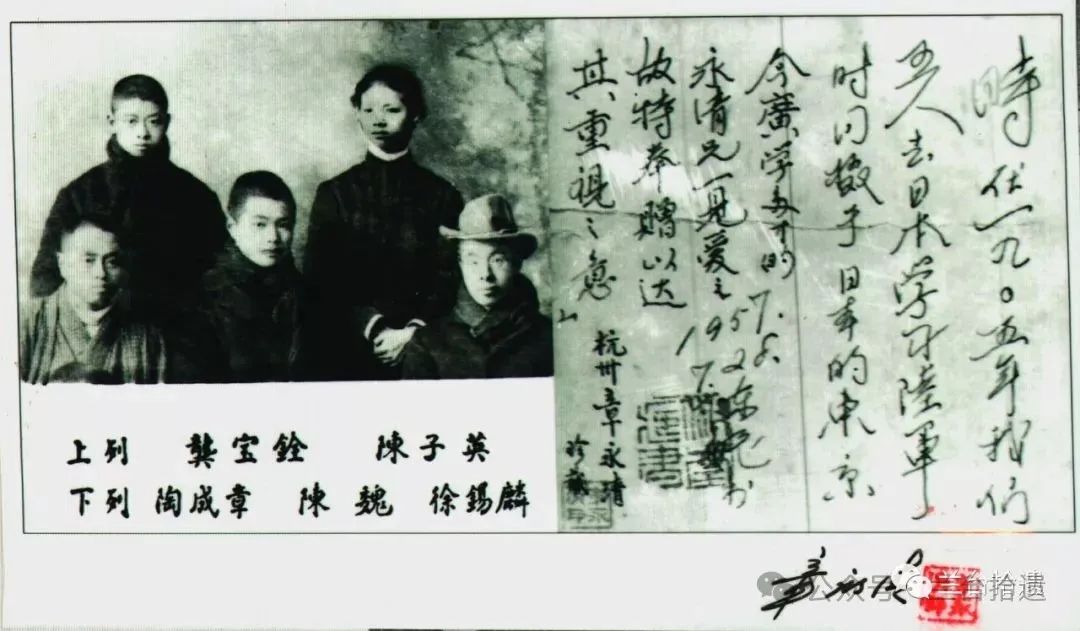 時 一九〇五年我们
五人去日本学习陸軍
时同 于日本的東京
今廣学多才的
永清兄一見爱之
故特奉赠以达
其重視之意
1957.
杭州章永清
珍藏
上列 龔宝銓 陳子英
下列 陶成章 陳魏 徐錫麟
公众号 兰台拾遗